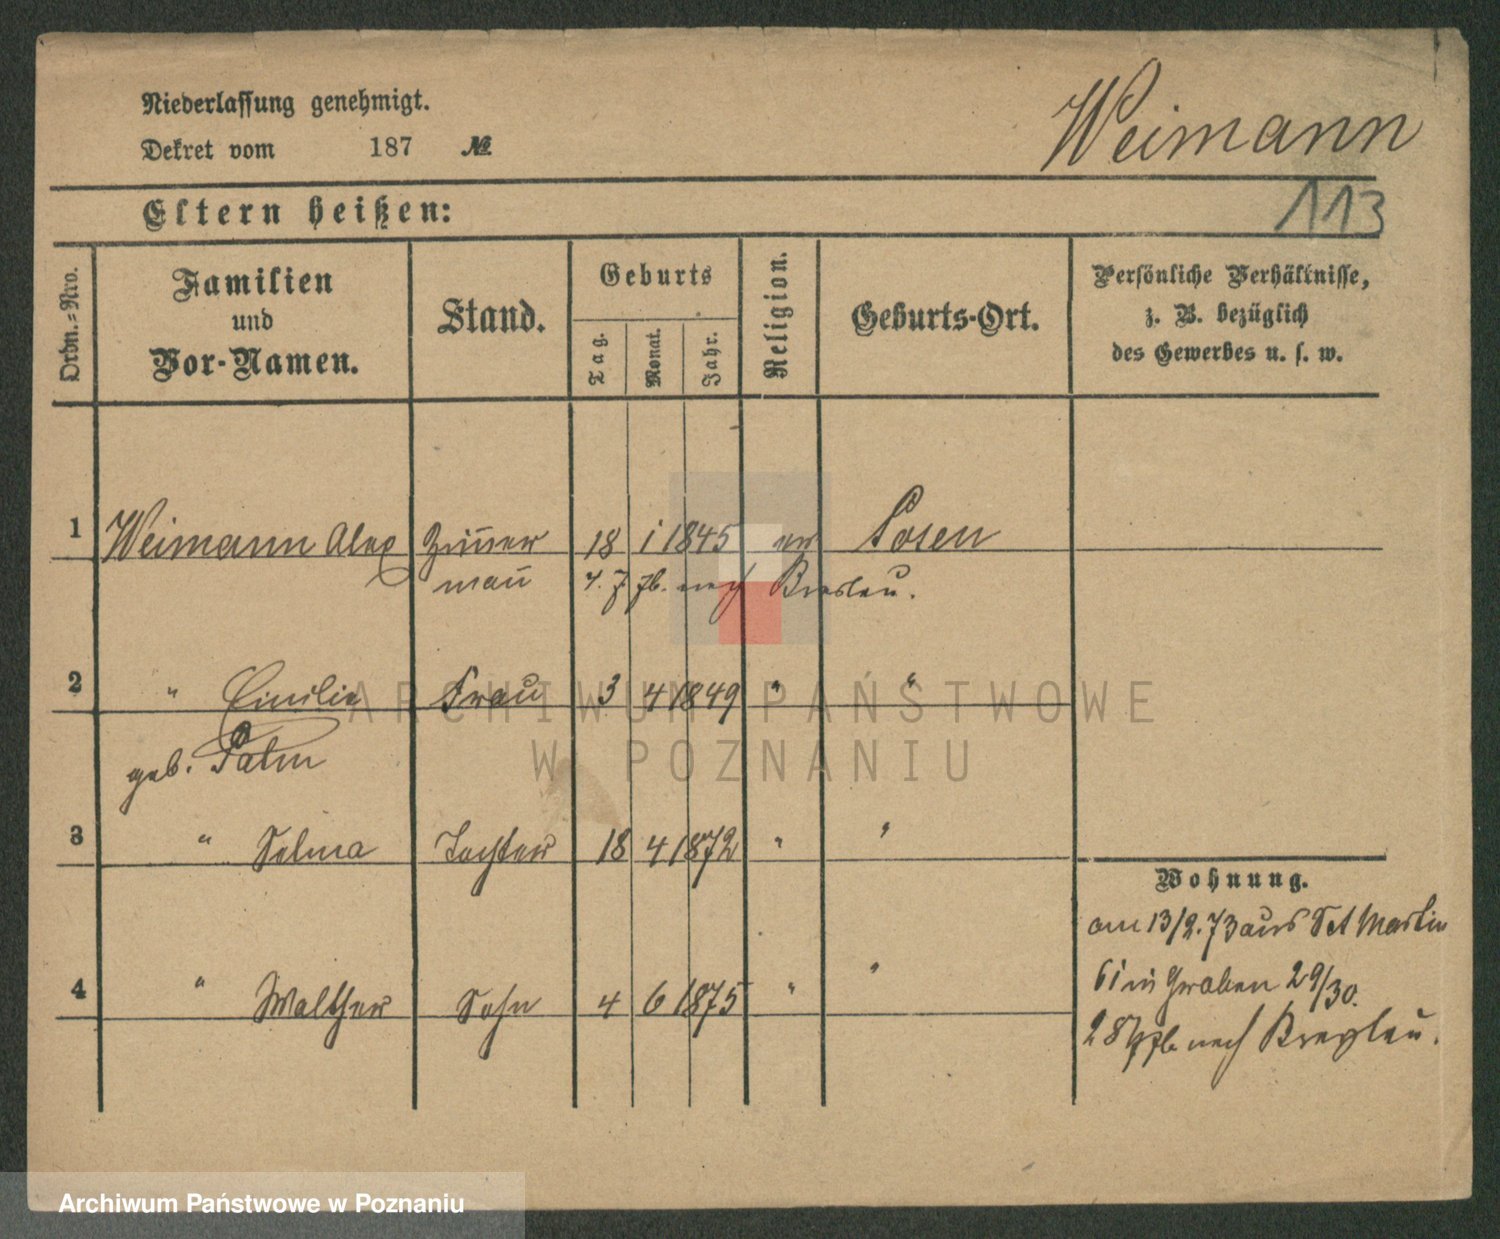 Niederlassung genehmigt.
Weimann
Dekret vom 187 №
113
Eltern heißen:
Ordn.=Nro.
Familien
und
Vor-Namen.
Stand.
Geburts
Tag.
Monat.
Jahr.
Religion.
Geburts-Ort.
Persönliche Verhältnisse,
z. B. bezüglich
des Gewerbes u. s. w.
1 Weimann Alex Zim̅er 18 1 1845 ev Posen
man̅ 4. 7. 76. nach Breslau.
2 " Emilie Frau 3 4 1849 " "
geb. Palm
3 " Selma Tochter 18 4 1872 " "
4 " Walther Sohn 4 6 1875 " "
Wohnung.
am 13/2.73 aus Sct Martin
61 in Graben 29/30.
nach Breslau.
ARCHIWUM PAŃSTWOWE
W POZNANIU
Archiwum Państwowe w Poznaniu